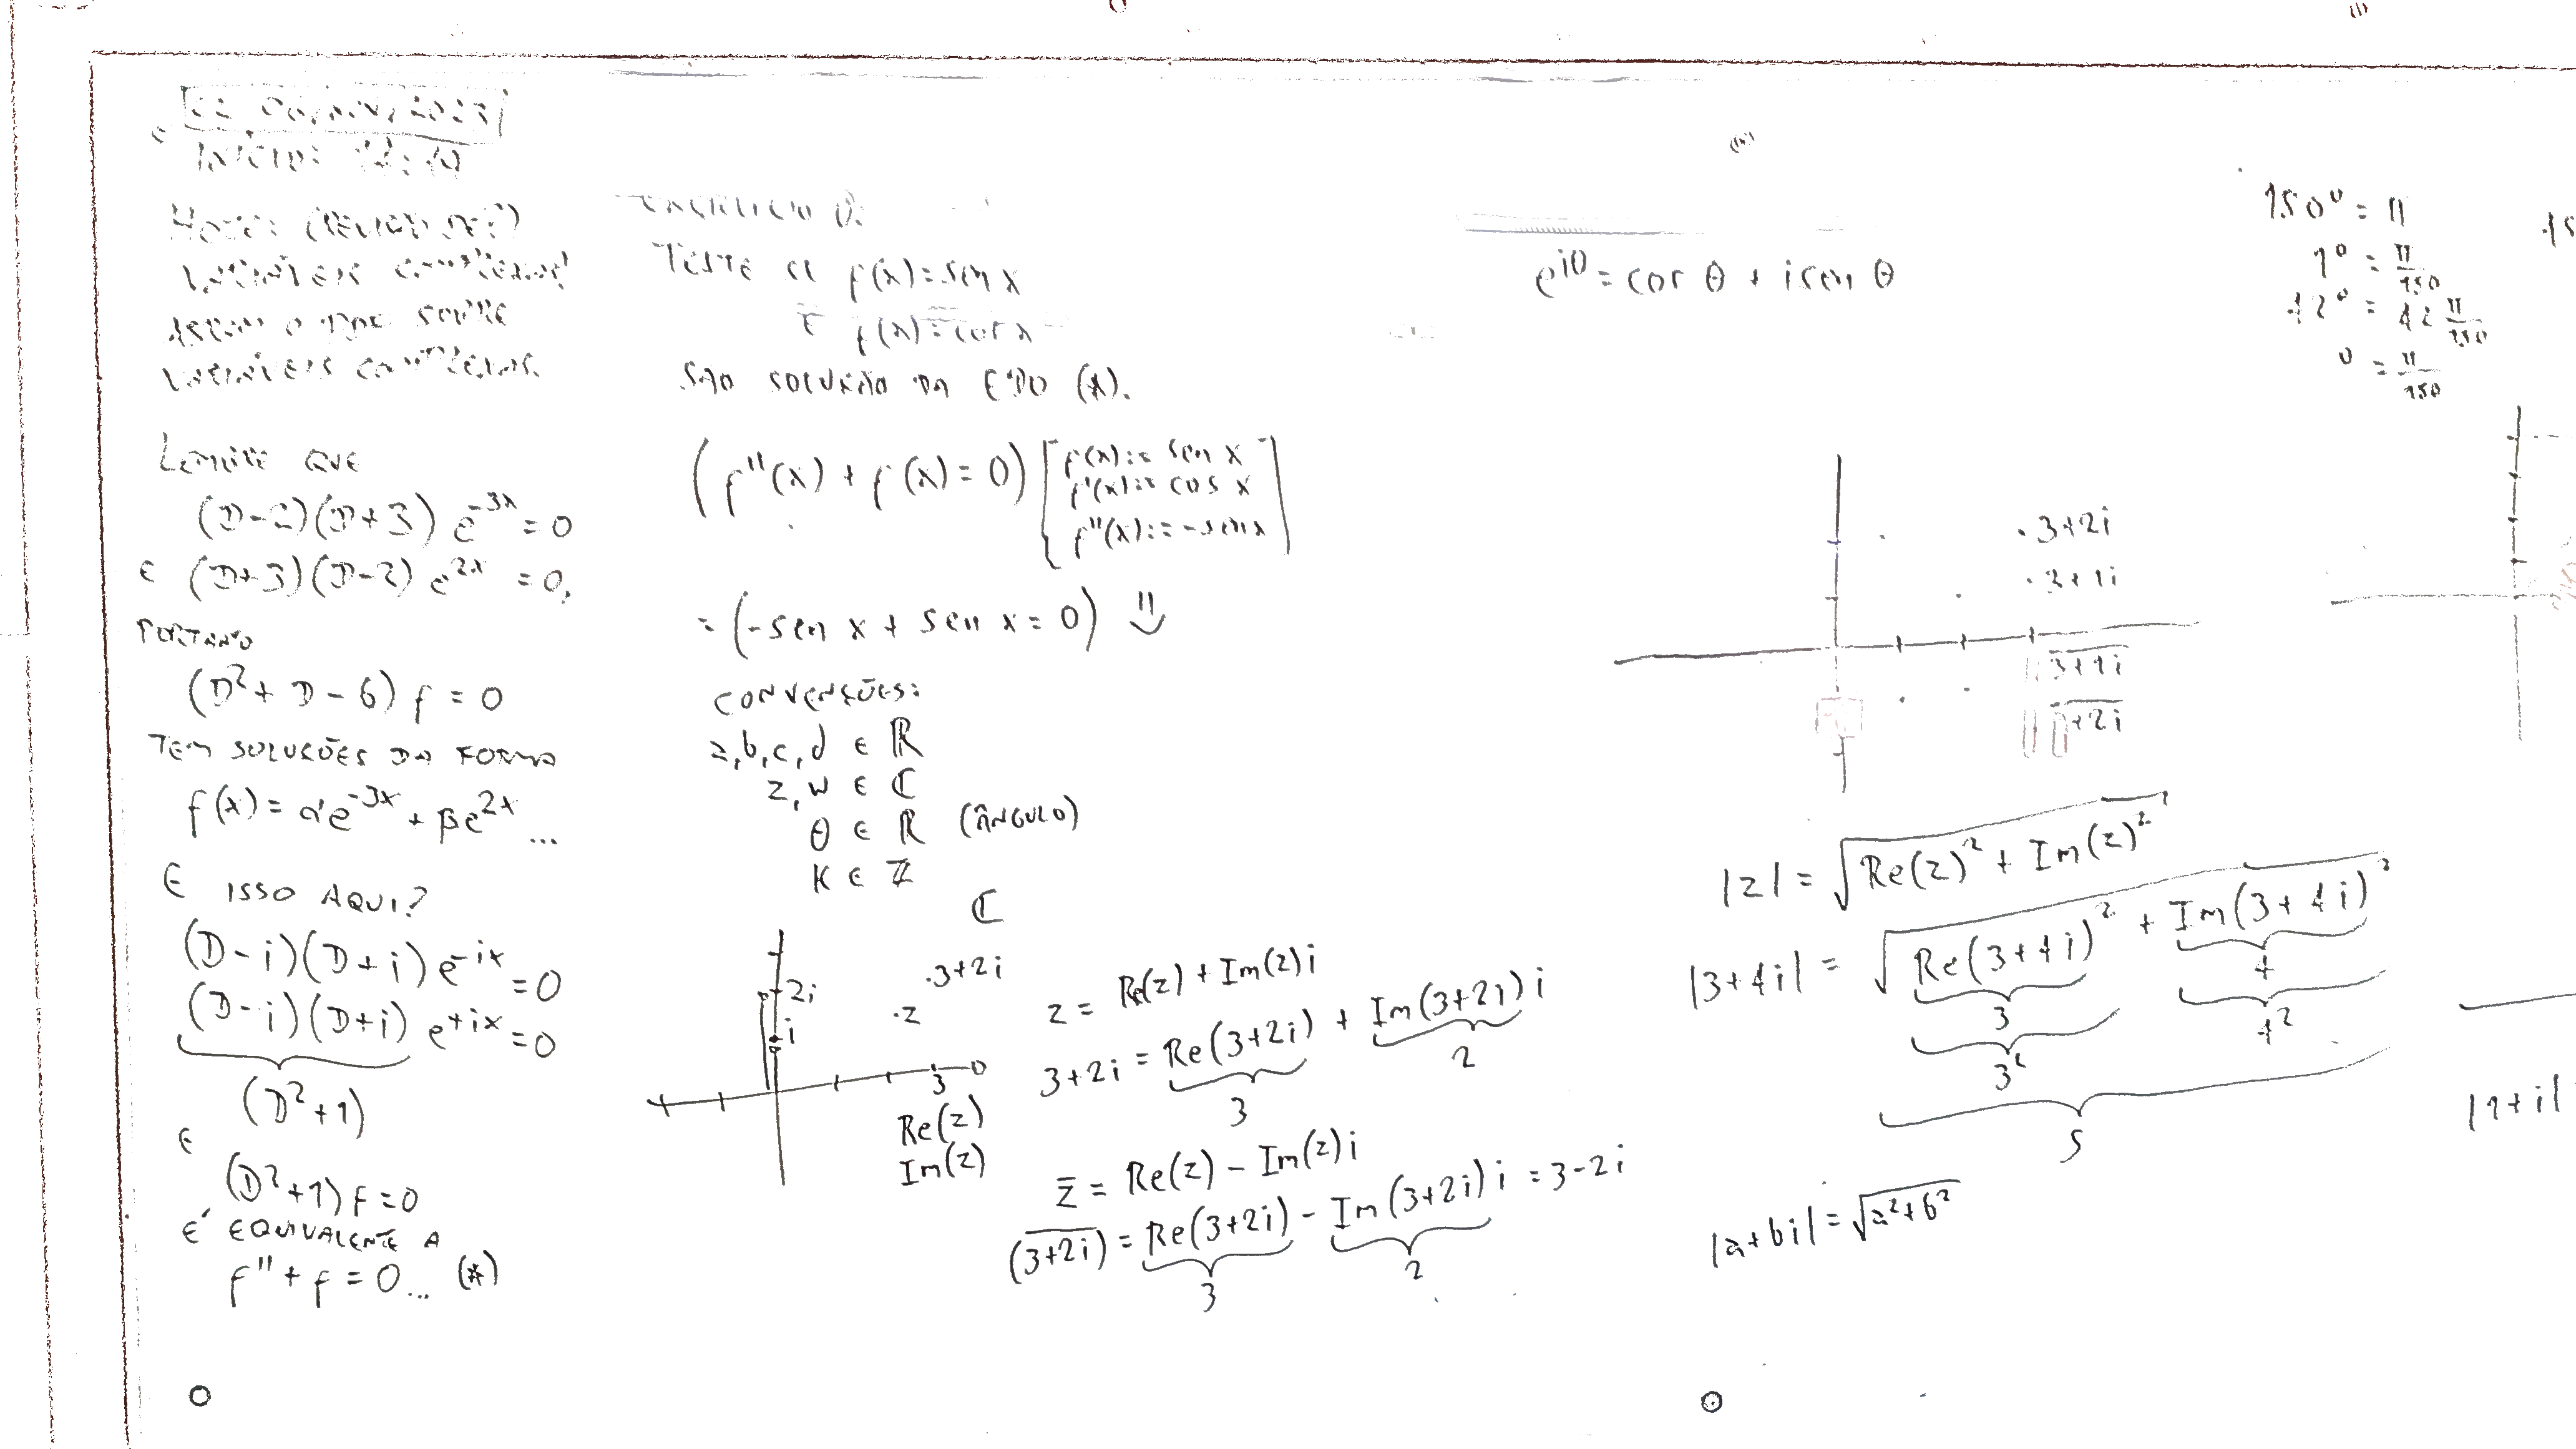 INÍCIO: 14:10
HOJE: (REVISÃO DE?)
VARIÁVEIS COMPLEXAS!
SOBRE
VARIÁVEIS COMPLEXAS.
LEMBRE QUE
(D-2)(D+3) e^{-3x} = 0
E (D+3)(D-2) e^{2x} = 0,
PORTANTO
(D²+D-6) f = 0
TEM SOLUÇÕES DA FORMA
f(x) = αe^{-3x} + βe^{2x} ...
E ISSO AQUI?
(D-i)(D+i) e^{-ix} = 0
(D-i)(D+i) e^{+ix} = 0
(D²+1)
E
(D²+1) f = 0
É EQUIVALENTE A
f'' + f = 0 ... (*)
EXERCÍCIO 0.
TESTE SE f(x) = sen x
E f(x) = cos x
SÃO SOLUÇÃO DA EDO (*).
(f''(x) + f(x) = 0) [f(x) := sen x
f'(x) := cos x
f''(x) := -sen x]
= (-sen x + sen x = 0) ű
CONVENÇÕES:
a, b, c, d ∈ ℝ
z, w ∈ ℂ
θ ∈ ℝ (ÂNGULO)
k ∈ ℤ
ℂ
3+2i
2i
z
i
3
Re(z)
Im(z)
z = Re(z) + Im(z)i
3+2i = Re(3+2i) + Im(3+2i) i
3 2
z̄ = Re(z) - Im(z)i
\overline{(3+2i)} = Re(3+2i) - Im(3+2i) i = 3-2i
3 2
e^{iθ} = cos θ + i sen θ
3+2i
3+1i
\overline{3+1i}
+2i
|z| = √(Re(z)² + Im(z)²)
|3+4i| = √(Re(3+4i)² + Im(3+4i)²)
3 4
3² 4²
5
|a+bi| = √(a²+b²)
180° = π
1° = π/180
42° = 42 π/180
° = π/180
|1+i|